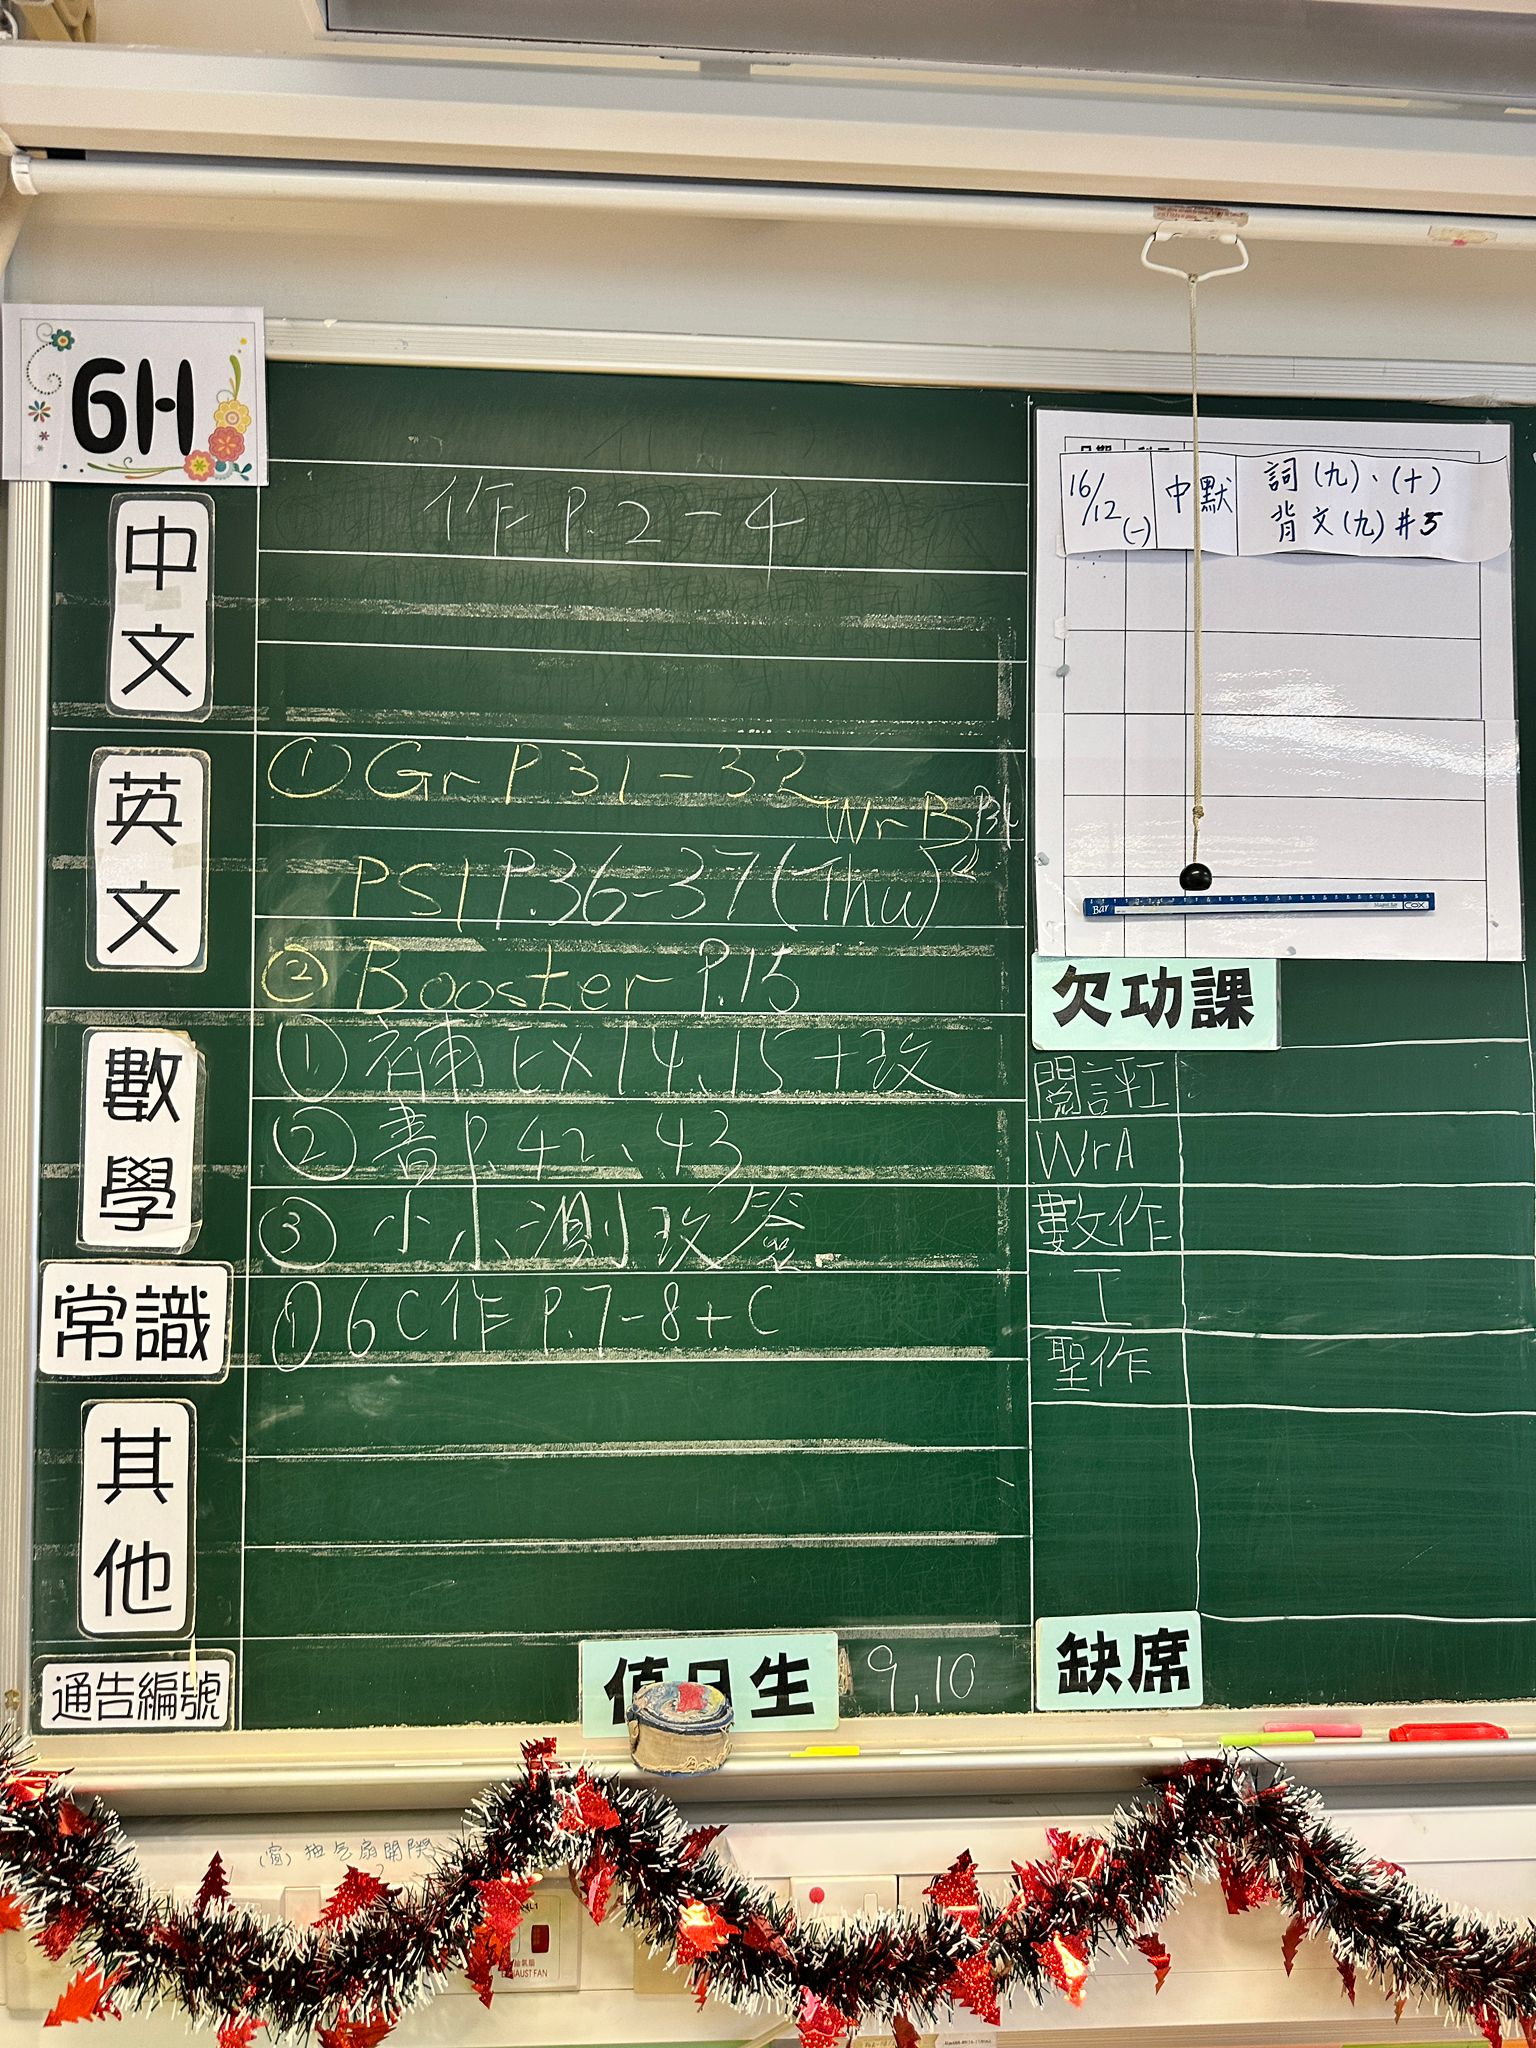 6H
中文
作 P.2-4
英文
① Gr P.31-32
Wr B
PS1 P.36-37 (Thu)
② Booster P.15
數學
① 補 Ex 14, 15 + 改
② 書 P.42、43
③ 小小測改簽
常識
① 6C作 P.7-8+C
其他
通告編號
值日生
9,10
16/12 (一)
中默
詞(九)、(十)
背文(九)#5
Bar
COX
欠功課
閱評工
WrA
數作
工
聖作
缺席
(窗) 抽气扇開關
EXHAUST FAN